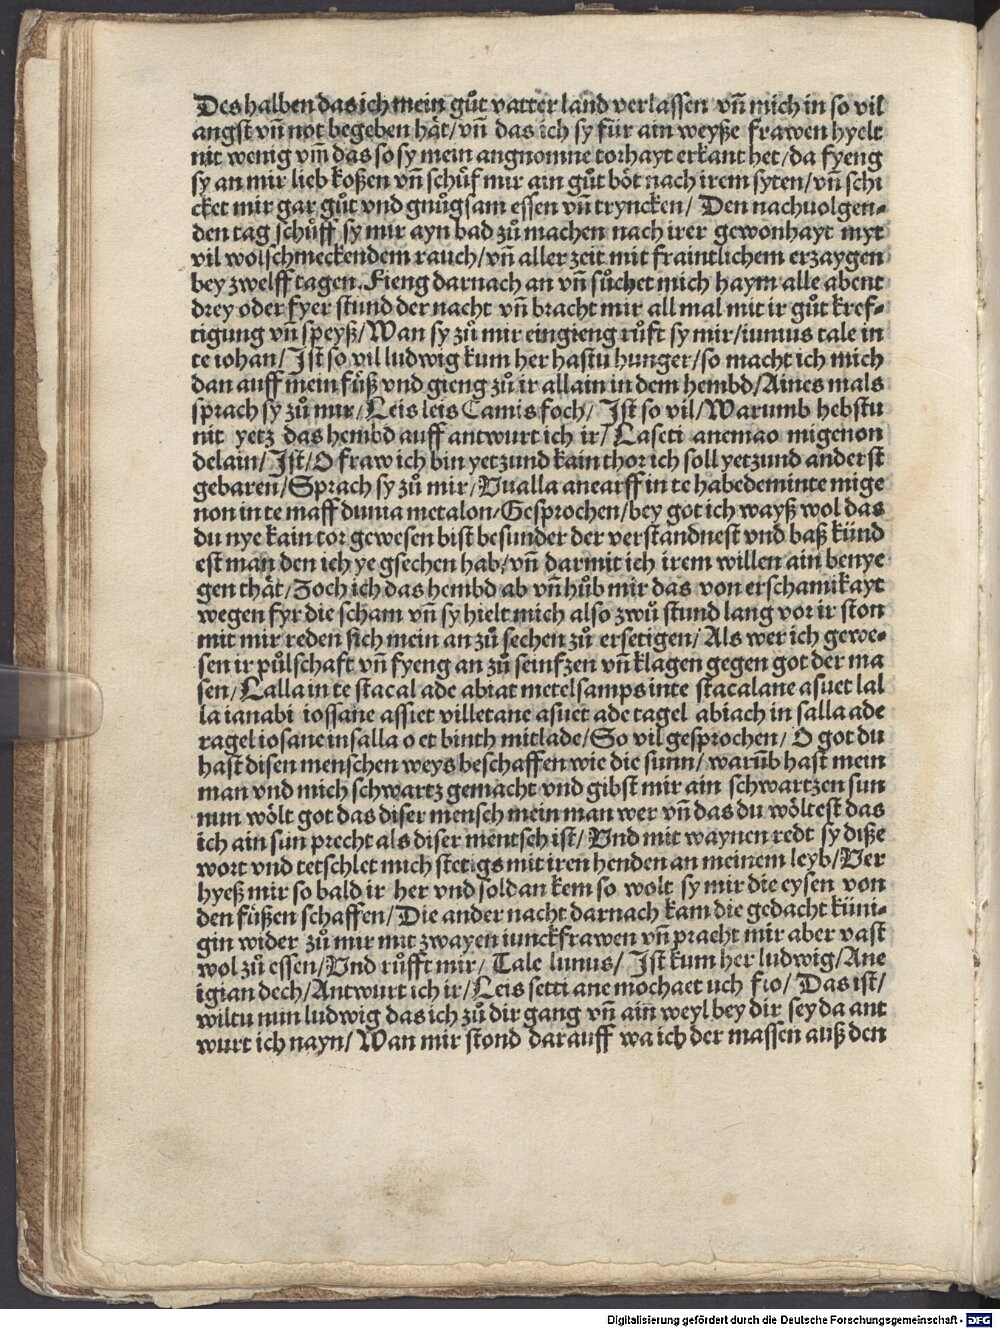 Deshalben das ich mein gůt vatter land verlassen vn̄ mich in so vil
angst vn̄ not begeben hät/vn̄ das ich sy für ain weyße frawen hyelt
nit wenig vm̄ das so sy mein angnomne torhayt erkant het/da fyeng
sy an mir lieb koßen vn̄ schůf mir ain gůt böt nach irem syten/vn̄ schi
cket mir gar gůt vnd gnůgsam essen vn̄ tryncken/ Den nachuolgen⸗
den tag schůff sy mir ayn bad zů machen nach irer gewonhayt myt
vil wolschmeckendem rauch/vn̄ aller zeit mit fraintlichem erzaygen
bey zwelff tagen. Fieng darnach an vn̄ sůchet mich haym alle abent
drey oder fyer stund der nacht vn̄ bracht mir all mal mit ir gůt kref⸗
tigung vn̄ speyß/Wan sy zů mir eingieng růft sy mir/iunus tale in
te iohan/Ist so vil ludwig kum her hastu hunger/so macht ich mich
dan auff mein füß vnd gieng zů ir allain in dem hembd/Aines mals
sprach sy zů mir/Leis leis Camis foch/ Ist so vil/Warumb hebstu
nit yetz das hembd auff antwurt ich ir/ Laseti anemao migenon
delain/Ist/O fraw ich bin yetzund kain thor ich soll yetzund anderst
gebaren/Sprach sy zů mir/Vualla anearff in te habedeminte mige
non in te maff dunia metalon/Gesprochen/bey got ich wayß wol das
du nye kain tor gewesen bist besunder der verstandnest vnd baß künd
est man den ich ye gsechen hab/vn̄ darmit ich irem willen ain benye
gen thät/Zoch ich das hembd ab vn̄ hůb mir das von erschamikayt
wegen fyr die scham vn̄ sy hielt mich also zwů stund lang vor ir ston
mit mir reden sich mein an zů sechen zů ersetigen/Als wer ich gewe⸗
sen ir půlschaft vn̄ fyeng an zů seinfzen vn̄ klagen gegen got der ma
sen/Lalla in te stacal ade abiat metelsamps inte stacalane asuet lal
la ianabi iossane assiet villetane asuet ade tagel abiach in salla ade
ragel iosane insalla o et binth mitlade/So vil gesprochen/ O got du
hast disen menschen weys beschaffen wie die sunn/warūb hast mein
man vnd mich schwartz gemacht vnd gibst mir ain schwartzen sun
nun wölt got das diser mensch mein man wer vn̄ das du wöltest das
ich ain sun precht als diser mentsch ist/ Vnd mit waynen redt sy diße
wort vnd tetschlet mich stetigs mit iren henden an meinem leyb/Ver
hyeß mir so bald ir her vnd soldan kem so wolt sy mir die eysen von
den füßen schaffen/Die ander nacht darnach kam die gedacht küni⸗
gin wider zů mir mit zwayen iunckfrawen vn̄ pracht mir aber vast
wol zů essen/Vnd růfft mir/ Tale lunus/ Ist kum her ludwig/Ane
igian dech/Antwurt ich ir/Leis setti ane mochaet uch fio/ Das ist/
wiltu nun ludwig das ich zů dir gang vn̄ ain weyl bey dir sey da ant
wurt ich nayn/ Wan mir stond darauff wa ich der massen auß den
Digitalisierung gefördert durch die Deutsche Forschungsgemeinschaft - DFG